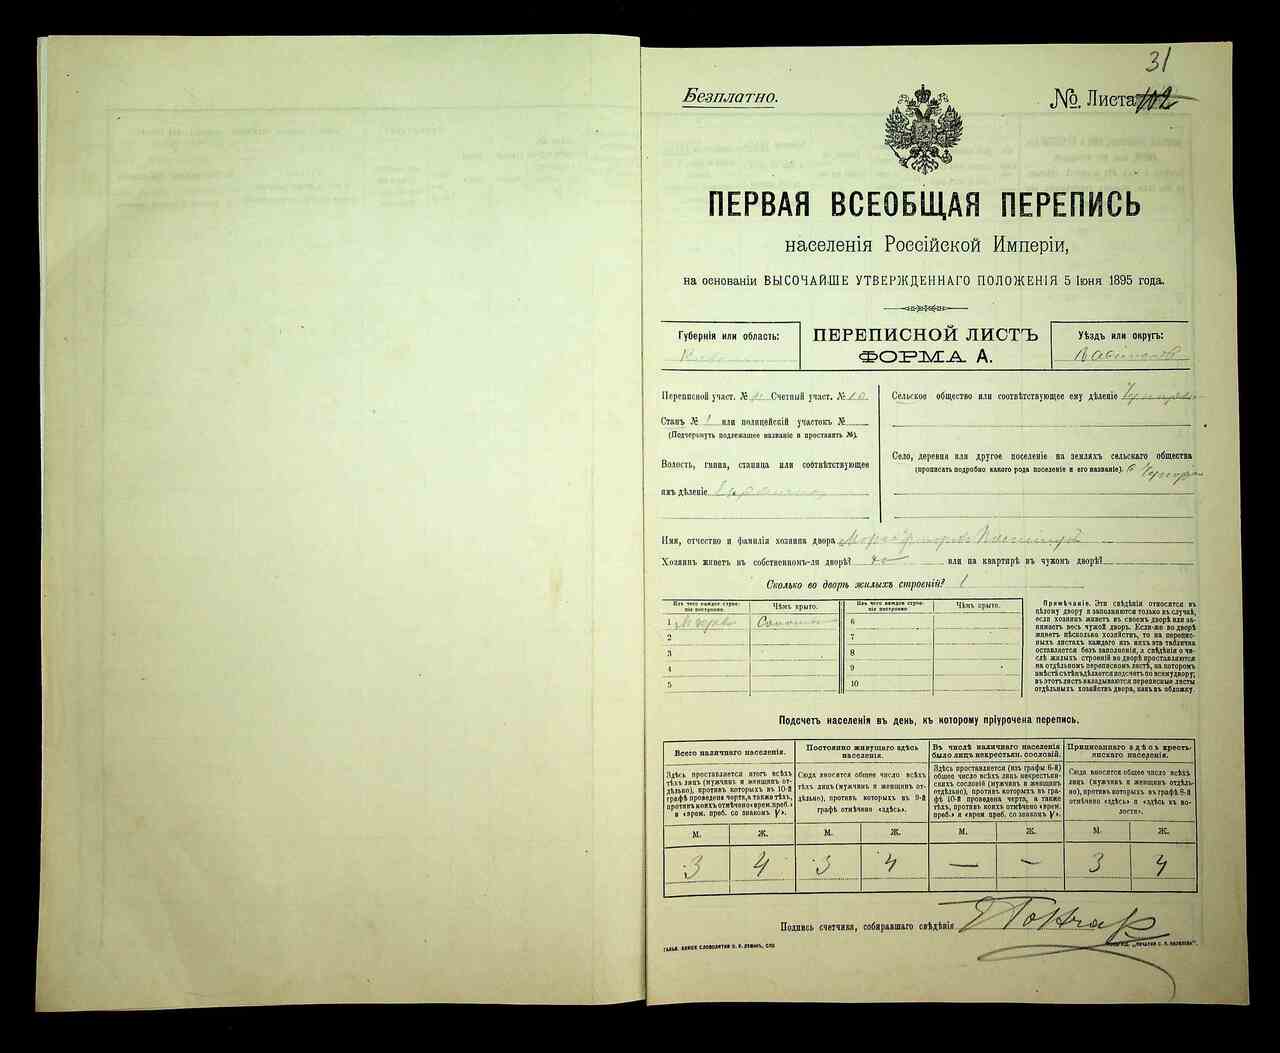 31
Безплатно.
№ Листа 102
ПЕРВАЯ ВСЕОБЩАЯ ПЕРЕПИСЬ
населенія Россійской Имперіи,
на основаніи ВЫСОЧАЙШЕ УТВЕРЖДЕННАГО ПОЛОЖЕНІЯ 5 Іюня 1895 года.
Губернія или область:
ПЕРЕПИСНОЙ ЛИСТЪ
ФОРМА А.
Уѣздъ или округъ:
Переписной участ. № Счетный участ. № 10
Станъ № 1 или полицейскій участокъ №
(Подчеркнуть подлежащее названіе и проставить №).
Волость, гмина, станица или соотвѣтствующее
имъ дѣленіе
Сельское общество или соотвѣтствующее ему дѣленіе
Село, деревня или другое поселеніе на земляхъ сельскаго общества
(прописать подробно какого рода поселеніе и его названіе).
Имя, отчество и фамилія хозяина двора
Хозяинъ живетъ въ собственномъ-ли дворѣ? да или на квартирѣ въ чужомъ дворѣ?
Сколько во дворѣ жилыхъ строеній? 1
Изъ чего каждое строе-
ніе построено.
Чѣмъ крыто.
Изъ чего каждое строе-
ніе построено
Чѣмъ крыто.
1 Солома 6
2 7
3 8
4 9
5 10
Примѣчаніе. Эти свѣдѣнія относятся къ
цѣлому двору и заполняются только въ случаѣ,
если хозяинъ живетъ въ своемъ дворѣ или за-
нимаетъ весь чужой дворъ. Если-же во дворѣ
живетъ нѣсколько хозяйствъ, то на перепис-
ныхъ листахъ каждаго изъ нихъ эта табличка
оставляется безъ заполненія, а свѣдѣнія о чи-
слѣ жилыхъ строеній во дворѣ проставляются
на отдѣльномъ переписномъ листѣ, на которомъ
вмѣстѣ съ тѣмъ дѣлается подсчетъ по всему двору;
въ этотъ листъ вкладываются переписные листы
отдѣльныхъ хозяйствъ двора, какъ въ обложку.
Подсчетъ населенія въ день, къ которому пріурочена перепись.
Всего наличнаго населенія.
Здѣсь проставляется итогъ всѣхъ
лицъ (мужчинъ и женщинъ от-
дѣльно), противъ которыхъ въ 10-й
графѣ проведена черта, а также тѣхъ,
противъ коихъ отмѣчено «врем. преб.»
и «врем. преб. со знакомъ V».
Постоянно живущаго здѣсь
населенія.
Сюда вносится общее число всѣхъ
тѣхъ лицъ (мужчинъ и женщинъ от-
дѣльно), противъ которыхъ въ 9-й
графѣ отмѣчено «здѣсь».
Въ числѣ наличнаго населенія
было лицъ некрестьян. сословій.
Здѣсь проставляется (изъ графы 6-й)
общее число всѣхъ лицъ некрестьян-
скихъ сословій (мужчинъ и женщинъ
отдѣльно), противъ которыхъ въ гра-
фѣ 10-й проведена черта, а также
тѣхъ, противъ коихъ отмѣчено «врем.
преб.» и «врем. преб. со знакомъ V».
Приписаннаго здѣсь кресть-
янскаго населенія.
Сюда вносится общее число всѣхъ
лицъ (мужчинъ и женщинъ отдѣль-
но), противъ которыхъ въ графѣ 8-й
отмѣчено «здѣсь» и «здѣсь къ во-
лости».
М. Ж. М. Ж. М. Ж. М. Ж.
3 4 3 4 — — 3 4
Подпись счетчика, собиравшаго свѣдѣнія